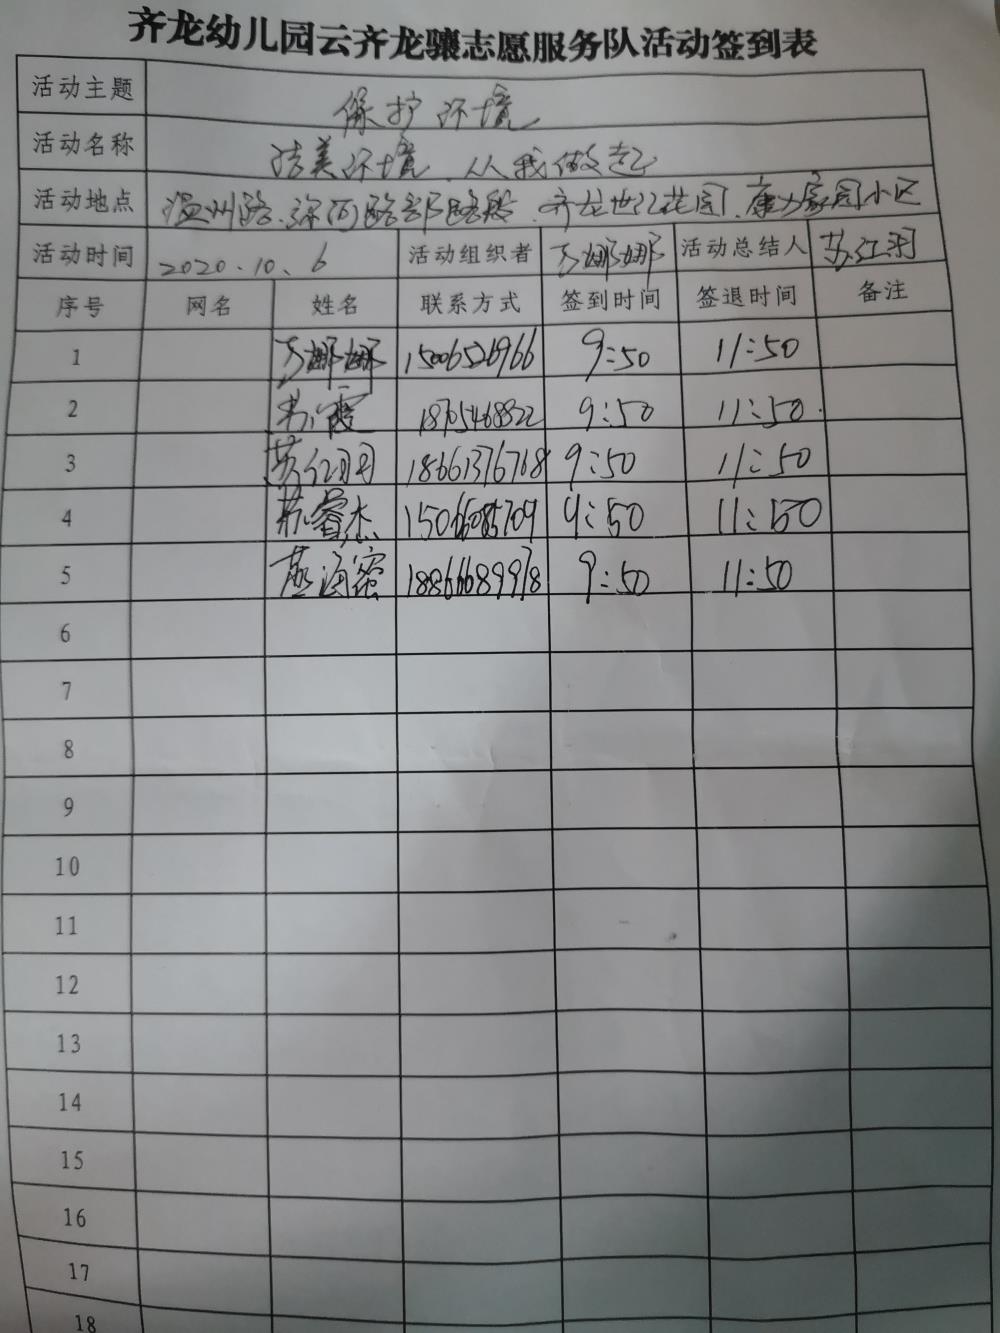 齐龙幼儿园云齐龙骧志愿服务队活动签到表
活动主题 保护环境
活动名称 洁美环境、从我做起
活动地点 温州路、深河路部路段、齐龙世纪花园、康力家园小区
活动时间 2020.10.6 活动组织者 娜娜 活动总结人
序号 网名 姓名 联系方式 签到时间 签退时间 备注
1 娜娜 15006526966 9:50 11:50
2 霞 18705468822 9:50 11:50.
3 18661376768 9:50 11:50
4 苏睿杰 15066085709 9:50 11:50
5 燕海蜜 18866689978 9:50 11:50
6
7
8
9
10
11
12
13
14
15
16
17
18